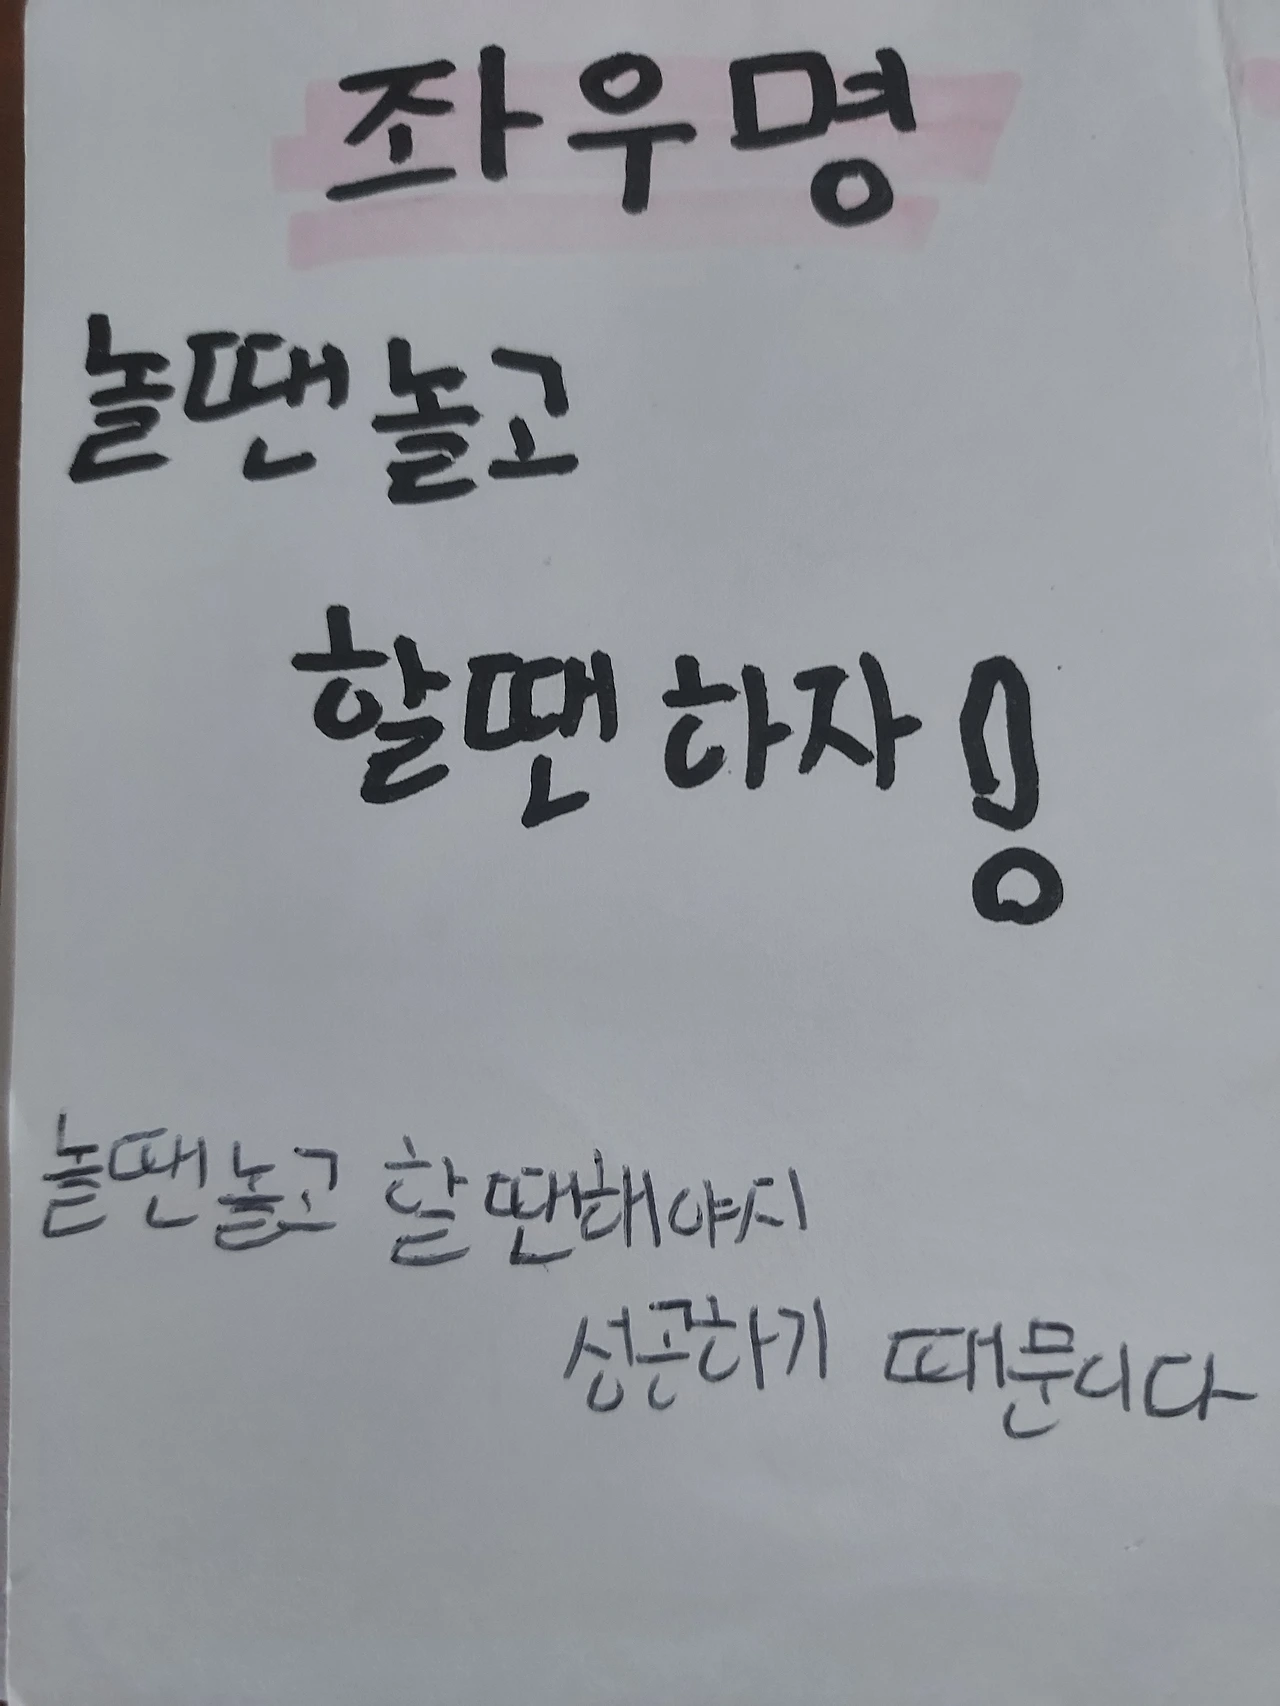 좌우명
놀땐 놀고
할땐 하자!
놀땐 놀고 할 땐 해야지
성공하기 때문니다